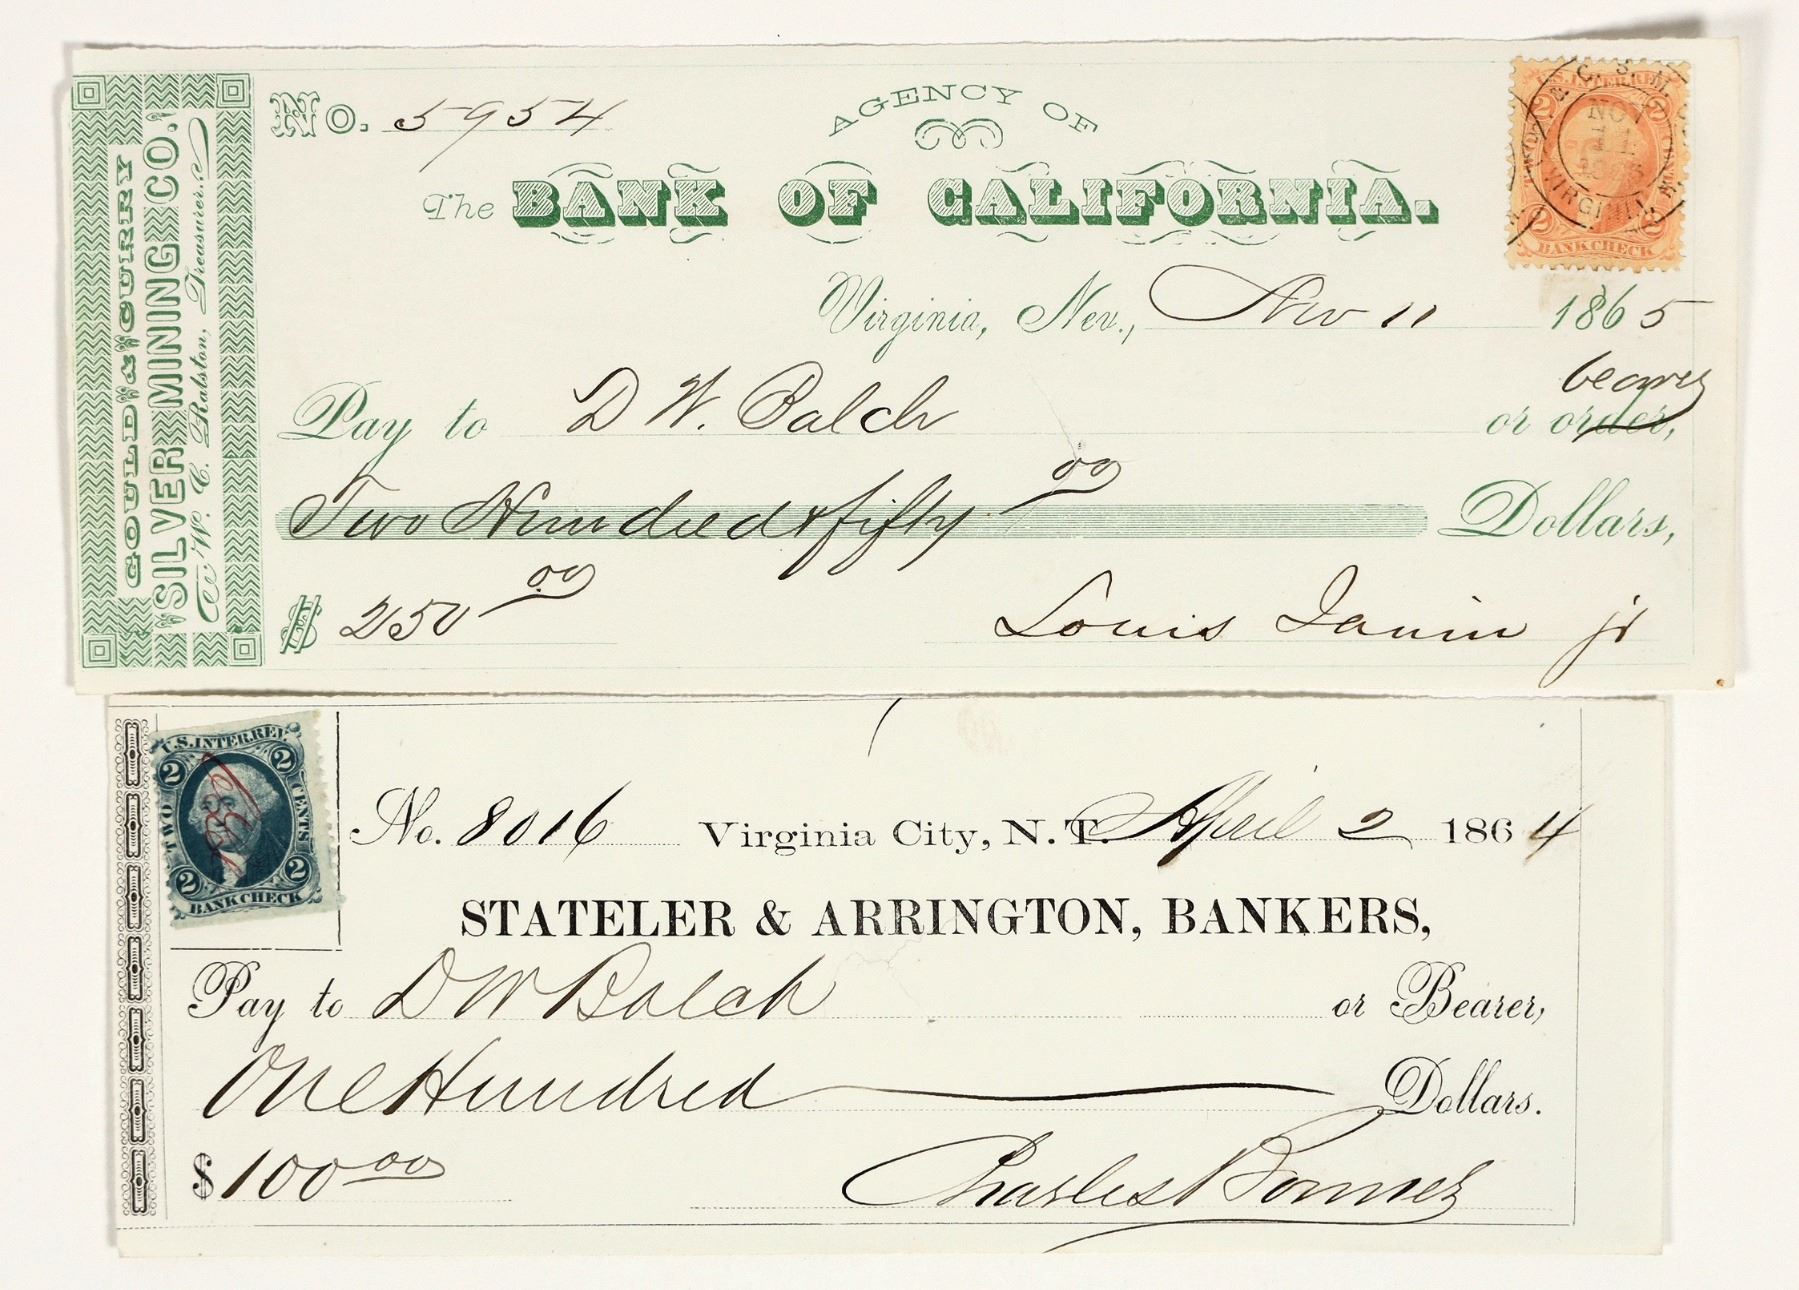 GOULD & CURRY
SILVER MINING CO.
W. C. Ralston, Treasurer.
No. 5954
AGENCY OF
The BANK OF CALIFORNIA.
Virginia, Nev., Nov 11 1865
Pay to D W. Balch or order, bearer
Two Hundred & fifty 00 Dollars,
$ 250 00 Louis Janin jr
U.S. INTER. REV.
2 2
NOV
11
VIRGINIA
2 2
BANK CHECK
U.S. INTER. REV.
2 2
TWO CENTS
2 2
BANK CHECK
No. 8016 Virginia City, N. T. April 2 1864
STATELER & ARRINGTON, BANKERS,
Pay to D W Balch or Bearer,
One Hundred Dollars.
$ 100 00 Charles Bonner